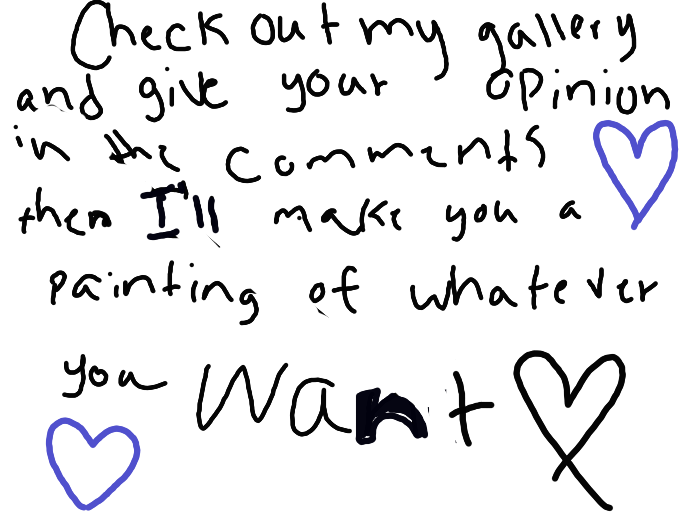 Check out my gallery
and give your opinion
in the comments
then I'll make you a
painting of whatever
you want